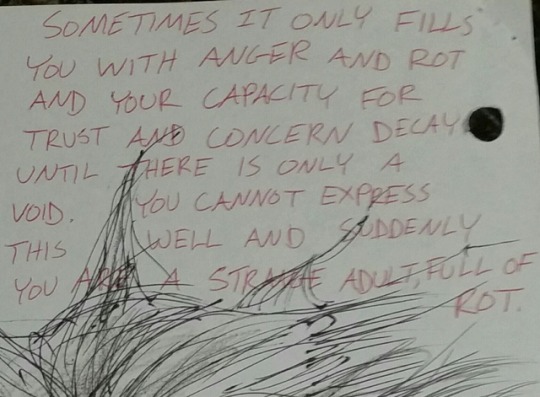 SOMETIMES IT ONLY FILLS
YOU WITH ANGER AND ROT
AND YOUR CAPACITY FOR
TRUST AND CONCERN DECAY
UNTIL THERE IS ONLY A
VOID. YOU CANNOT EXPRESS
THIS WELL AND SUDDENLY
YOU ARE A STRANGE ADULT, FULL OF
ROT.